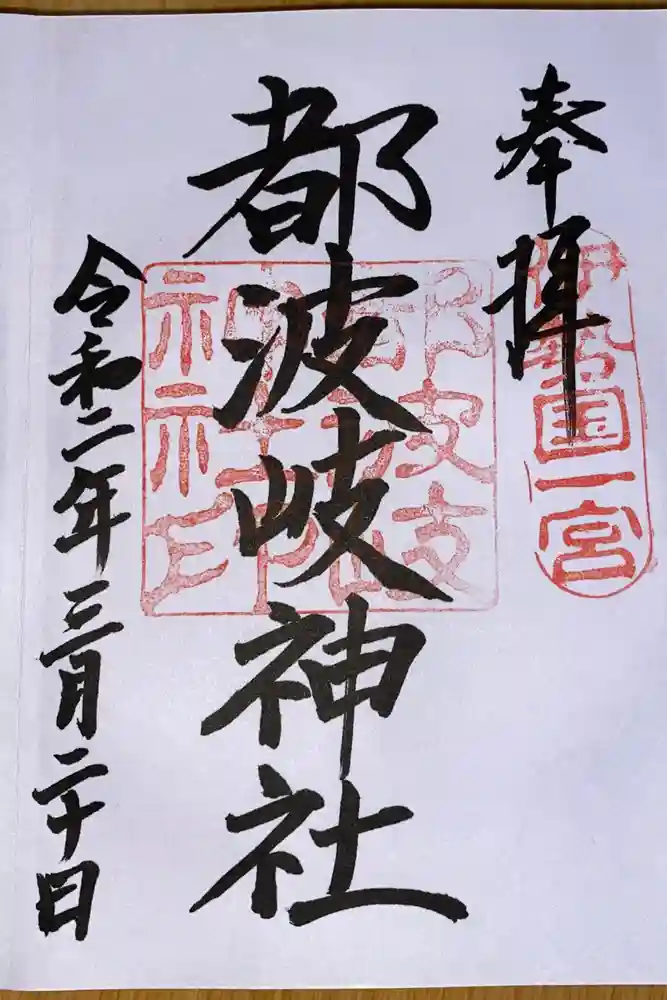 奉拝
伊勢国一宮
都波岐神社
都波岐
神社
神社印
令和二年三月二十日